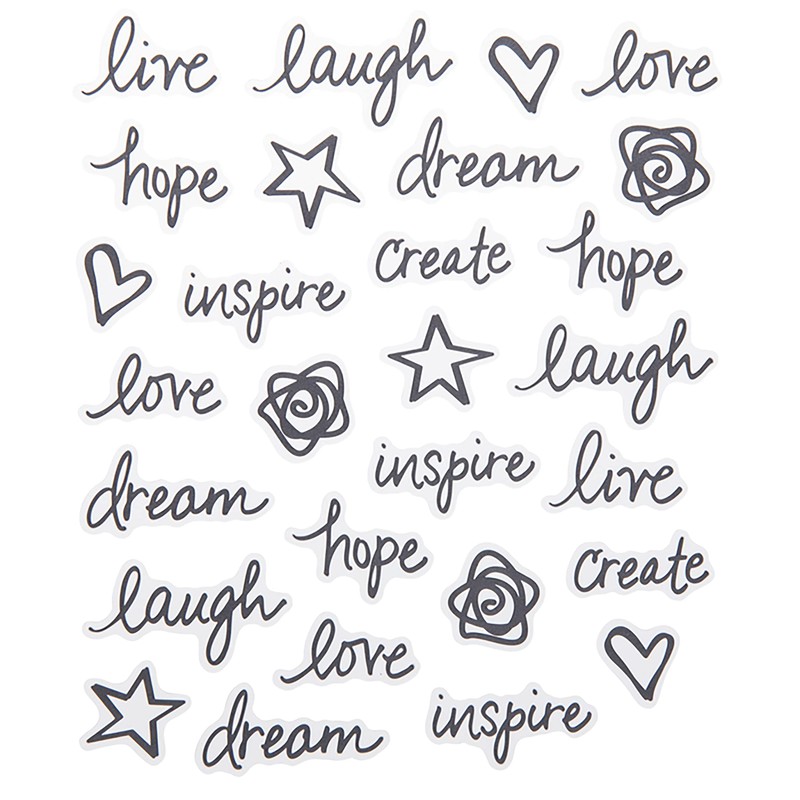 live laugh love
hope dream
inspire create hope
love laugh
dream inspire live
hope create
laugh love
dream inspire